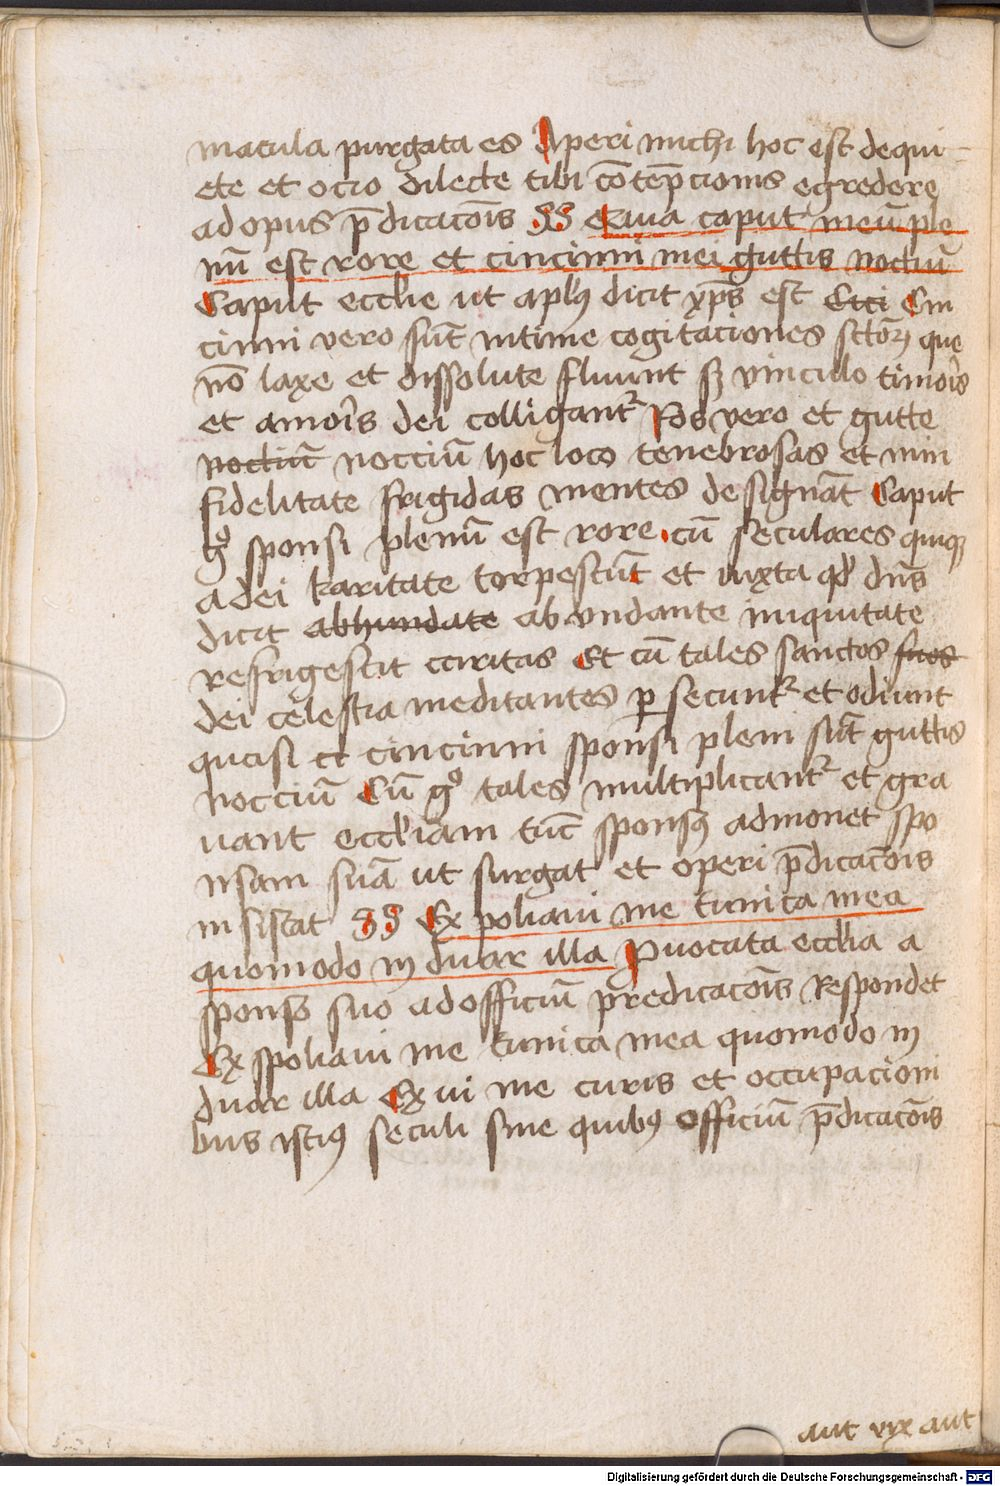 macula purgata es Aperi michi hoc est dequi-
ete et ocio dilecte tibi cōtēp̄cionis egredere
ad opus p̄dicacōis SS Quia caput meū ple
nū est rore et cincinni mei guttis noctiū
Caput eccl̄ie ut apl̄us dicit xp̄s est Cin
cinni vero sūt intime cogitaciones sctōꝝ que
nō laxe et dissolute fluunt sꝫ vinculo timoris
et amoris dei colliganť Ros vero et gutte
noctiū noccium hoc loco tenebrosas et in in
fidelitate frigidas mentes designāt Caput
gͦ sponsi plenū est rore cū seculares quiqꝫ
a dei karitate torpescūt et iuxta qd̛ dn̄s
dicit abhundate abundante iniquitate
refrigescit caritas Et cū tales sanctos suos
dei celestia meditantes ꝑsecunť et odiunt
quasi et cincinni sponsi pleni sūt guttis
nocciū Cū gͦ tales multiplicanť et gra
uant eccl̄iam tūc sponsꝰ admonet spo
nsam suā ut surgat et operi p̄dicacōis
insistat SS Expoliaui me tunica mea
quomodo induar illa Puocata eccl̄ia a
sponso suo ad officiū predicacōis Respondet
Exspoliaui me tunica mea quomodo in
duar illa Exui me curis et occupacioni
bus istiꝰ seculi sine quibꝰ officiū p̄dicacōis
aut vix aut
Digitalisierung gefördert durch die Deutsche Forschungsgemeinschaft - DFG